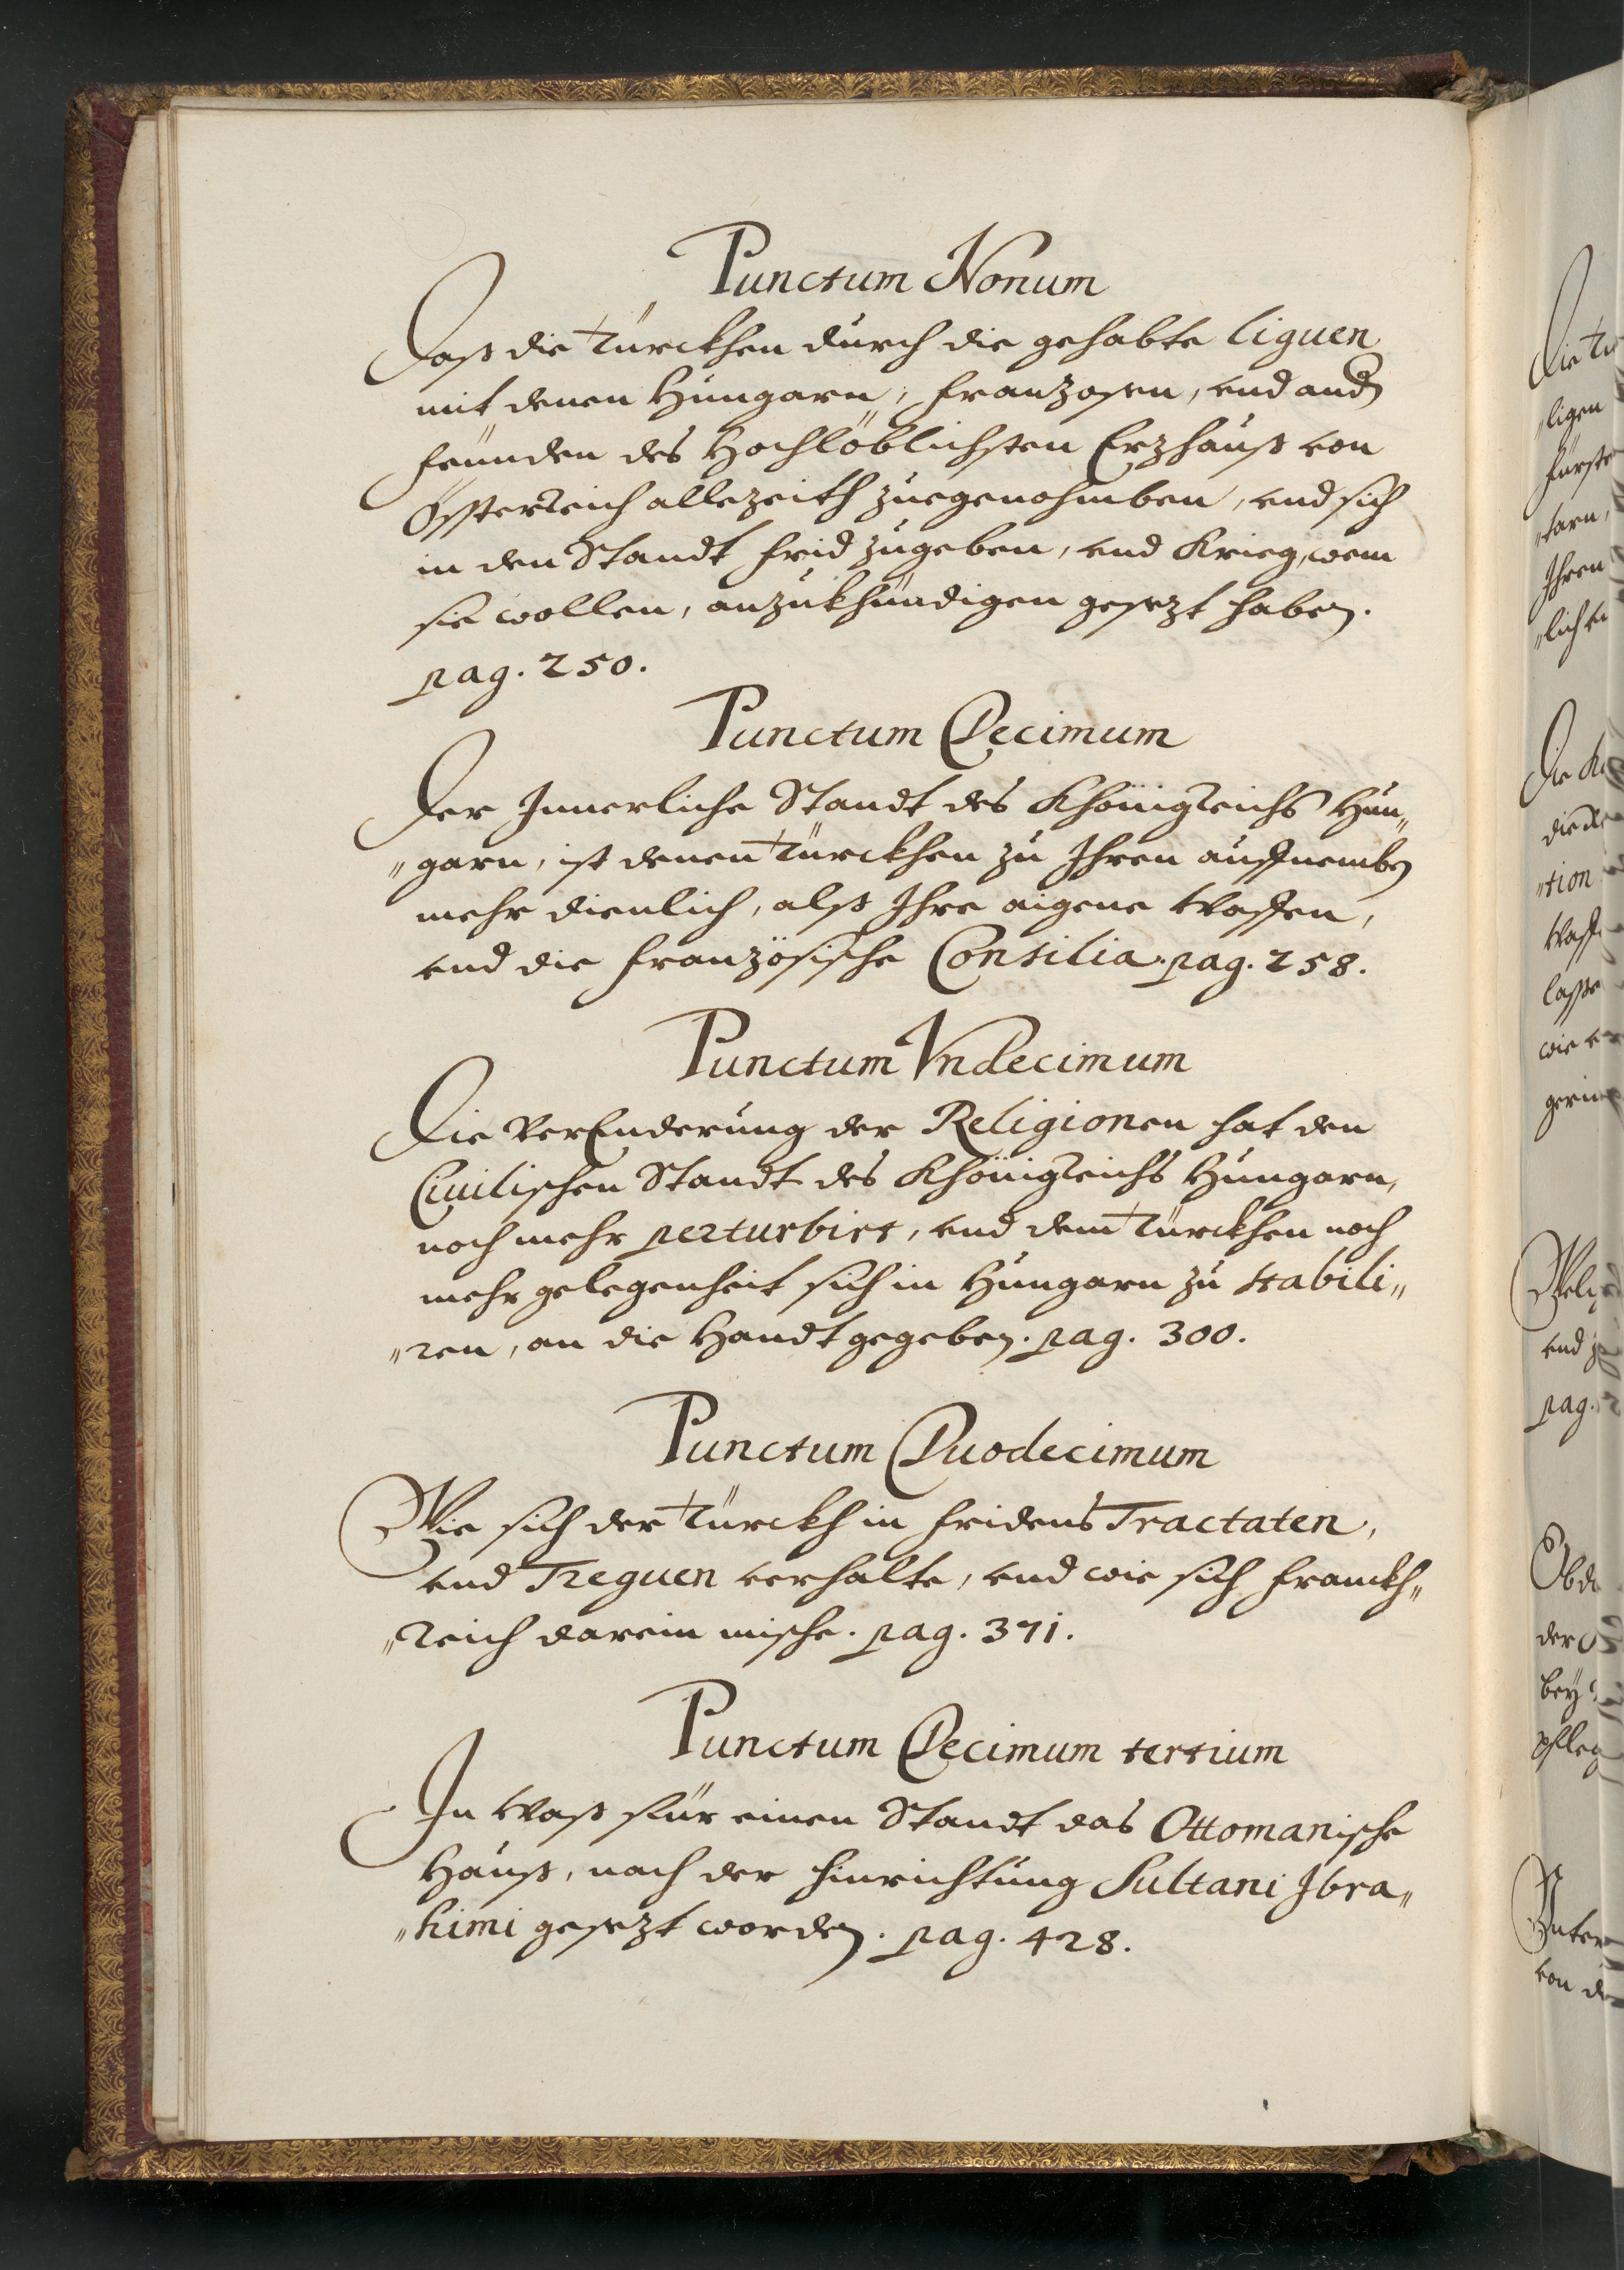 Punctum Nonum
Daß die Türckhen durch die gehabte liguen
mit denen Hungarn, Franzosen, vnd andern
feünden des Hochlöblichsten Erzhauß von
Össterreich allezeith zuegenohmben, vnd sich
in den Standt frid zugeben, vnd Krieg, wem
sie wollen, anzukhündigen gesezt haben.
pag. 250.
Punctum Decimum
Der Innerliche Standt des Khönigreichs Hun„
„garn, ist denen Türckhen zu Ihren auffnemben
mehr dienlich, alß Ihre aigene Waffen,
vnd die französische Consilia. pag. 258.
Punctum Vndecimum
Die VerEnderung der Religionen hat den
Ciuilischen Standt des Khönigreichs Hungarn,
noch mehr perturbirt, vnd dem Türckhen noch
mehr gelegenheit sich in Hungarn zu stabili„
„ren, an die Handt gegeben. pag. 300.
Punctum Duodecimum
Wie sich der Türckh in fridens Tractaten,
vnd Treguen verhalte, vnd wie sich Franckh„
„reich darein mische. pag. 371.
Punctum Decimum tertium
In Waß für einen Standt das Ottomanische
Hauß, nach der hinrichtung Sultani Ibra„
„himi gesezt worden. pag. 428.